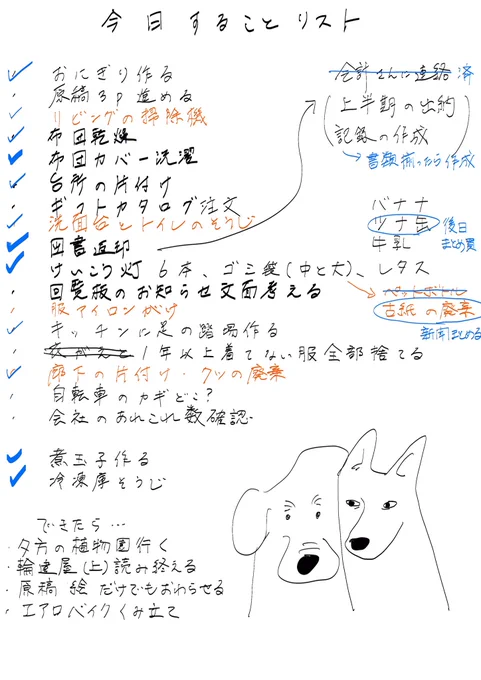 今日することリスト
おにぎり作る
原稿3P進める
リビングの掃除機
布団乾燥
布団カバー洗濯
台所の片付け
ギフトカタログ注文
洗面台とトイレのそうじ
図書返印
けいこう灯 6本、ゴミ袋(中と大)、レタス
回覧版のお知らせ文面考える
服アイロンがけ
キッチンに足の踏場作る
衣がえと 1年以上着てない服全部捨てる
廊下の片付け・クツの廃棄
自転車のカギどこ?
会社のあれこれ数確認
煮玉子作る
冷凍庫そうじ
できたら…
・夕方の植物園行く
・輪違屋(上)読み終える
・原稿 絵 だけでもおわらせる
・エアロバイクくみ立て
会計さんに連絡 済
(上半期の出納)
(記録の作成)
→書類揃ったら作成
バナナ
ツナ缶 後日
牛乳 まとめ買
ペットボトル
古紙の廃棄
新聞まとめる